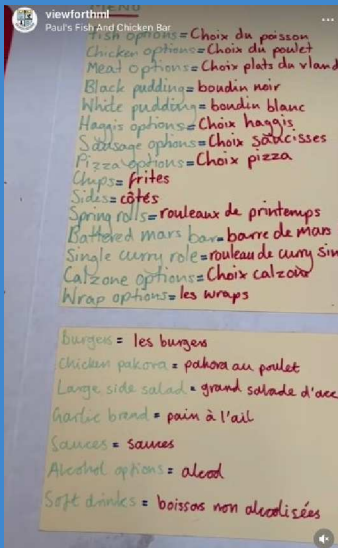 viewforthml
Paul's Fish And Chicken Bar
MENU
Fish options = Choix du poisson
Chicken options = Choix du poulet
Meat options = Choix plats du viand
Black pudding = boudin noir
White pudding = boudin blanc
Haggis options = Choix haggis
Sausage options = Choix saucisses
Pizza options = Choix pizza
Chips = frites
Sides = côtés
Spring rolls = rouleaux de printemps
Battered mars bar = barre de mars
Single curry role = rouleau de curry sin
Calzone options = Choix calzone
Wrap options = les wraps
Burgers = les burgers
Chicken pakora = pakora au poulet
Large side salad = grand salade d'acc
Garlic bread = pain à l'ail
Sauces = sauces
Alcohol options = alcool
Soft drinks = boissons non alcoolisées